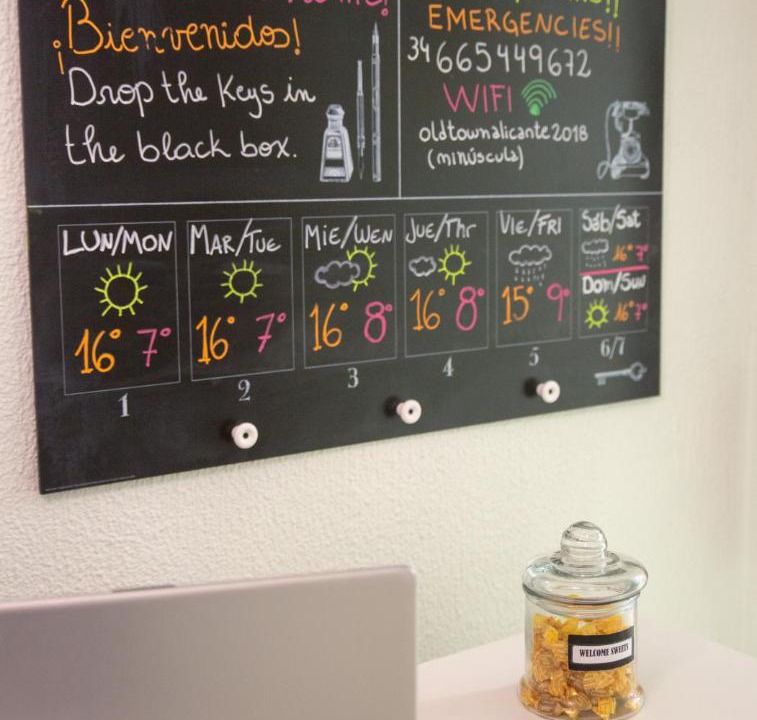 ¡Bienvenidos!
Drop the keys in
the black box.
EMERGENCIES!!
34 665449672
WIFI
oldtownalicante2018
(minúscula)
LUN/MON
16° 7°
1
MAR/TUE
16° 7°
2
MIE/WEN
16° 8°
3
JUE/Thr
16° 8°
4
VIE/FRI
15° 9°
5
Sáb/Sat
16° 7°
Dom/Sun
16° 7°
6/7
WELCOME SWEETS